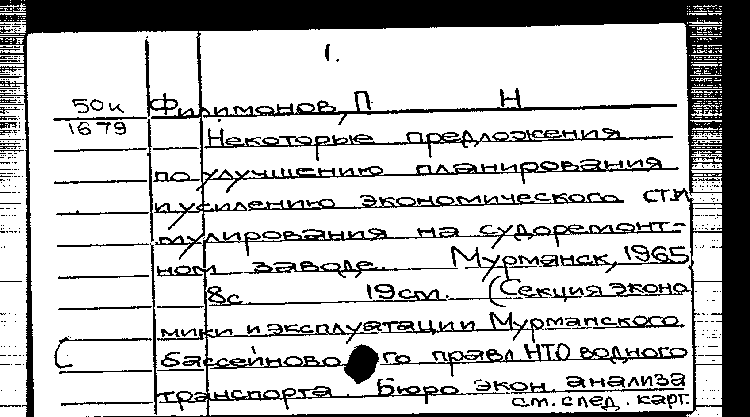 1.
50к Филимонов, П Н
1679
Некоторые предложения
по улучшению планирования
и усилению экономического сти
мулирования на судоремонт-
ном заводе. Мурманск, 1965
8с. 19см. (Секция эконо
мики и эксплуатации Мурманского
бассейново го правл. НТО водного
транспорта. Бюро экон. анализа
см. след. карт.